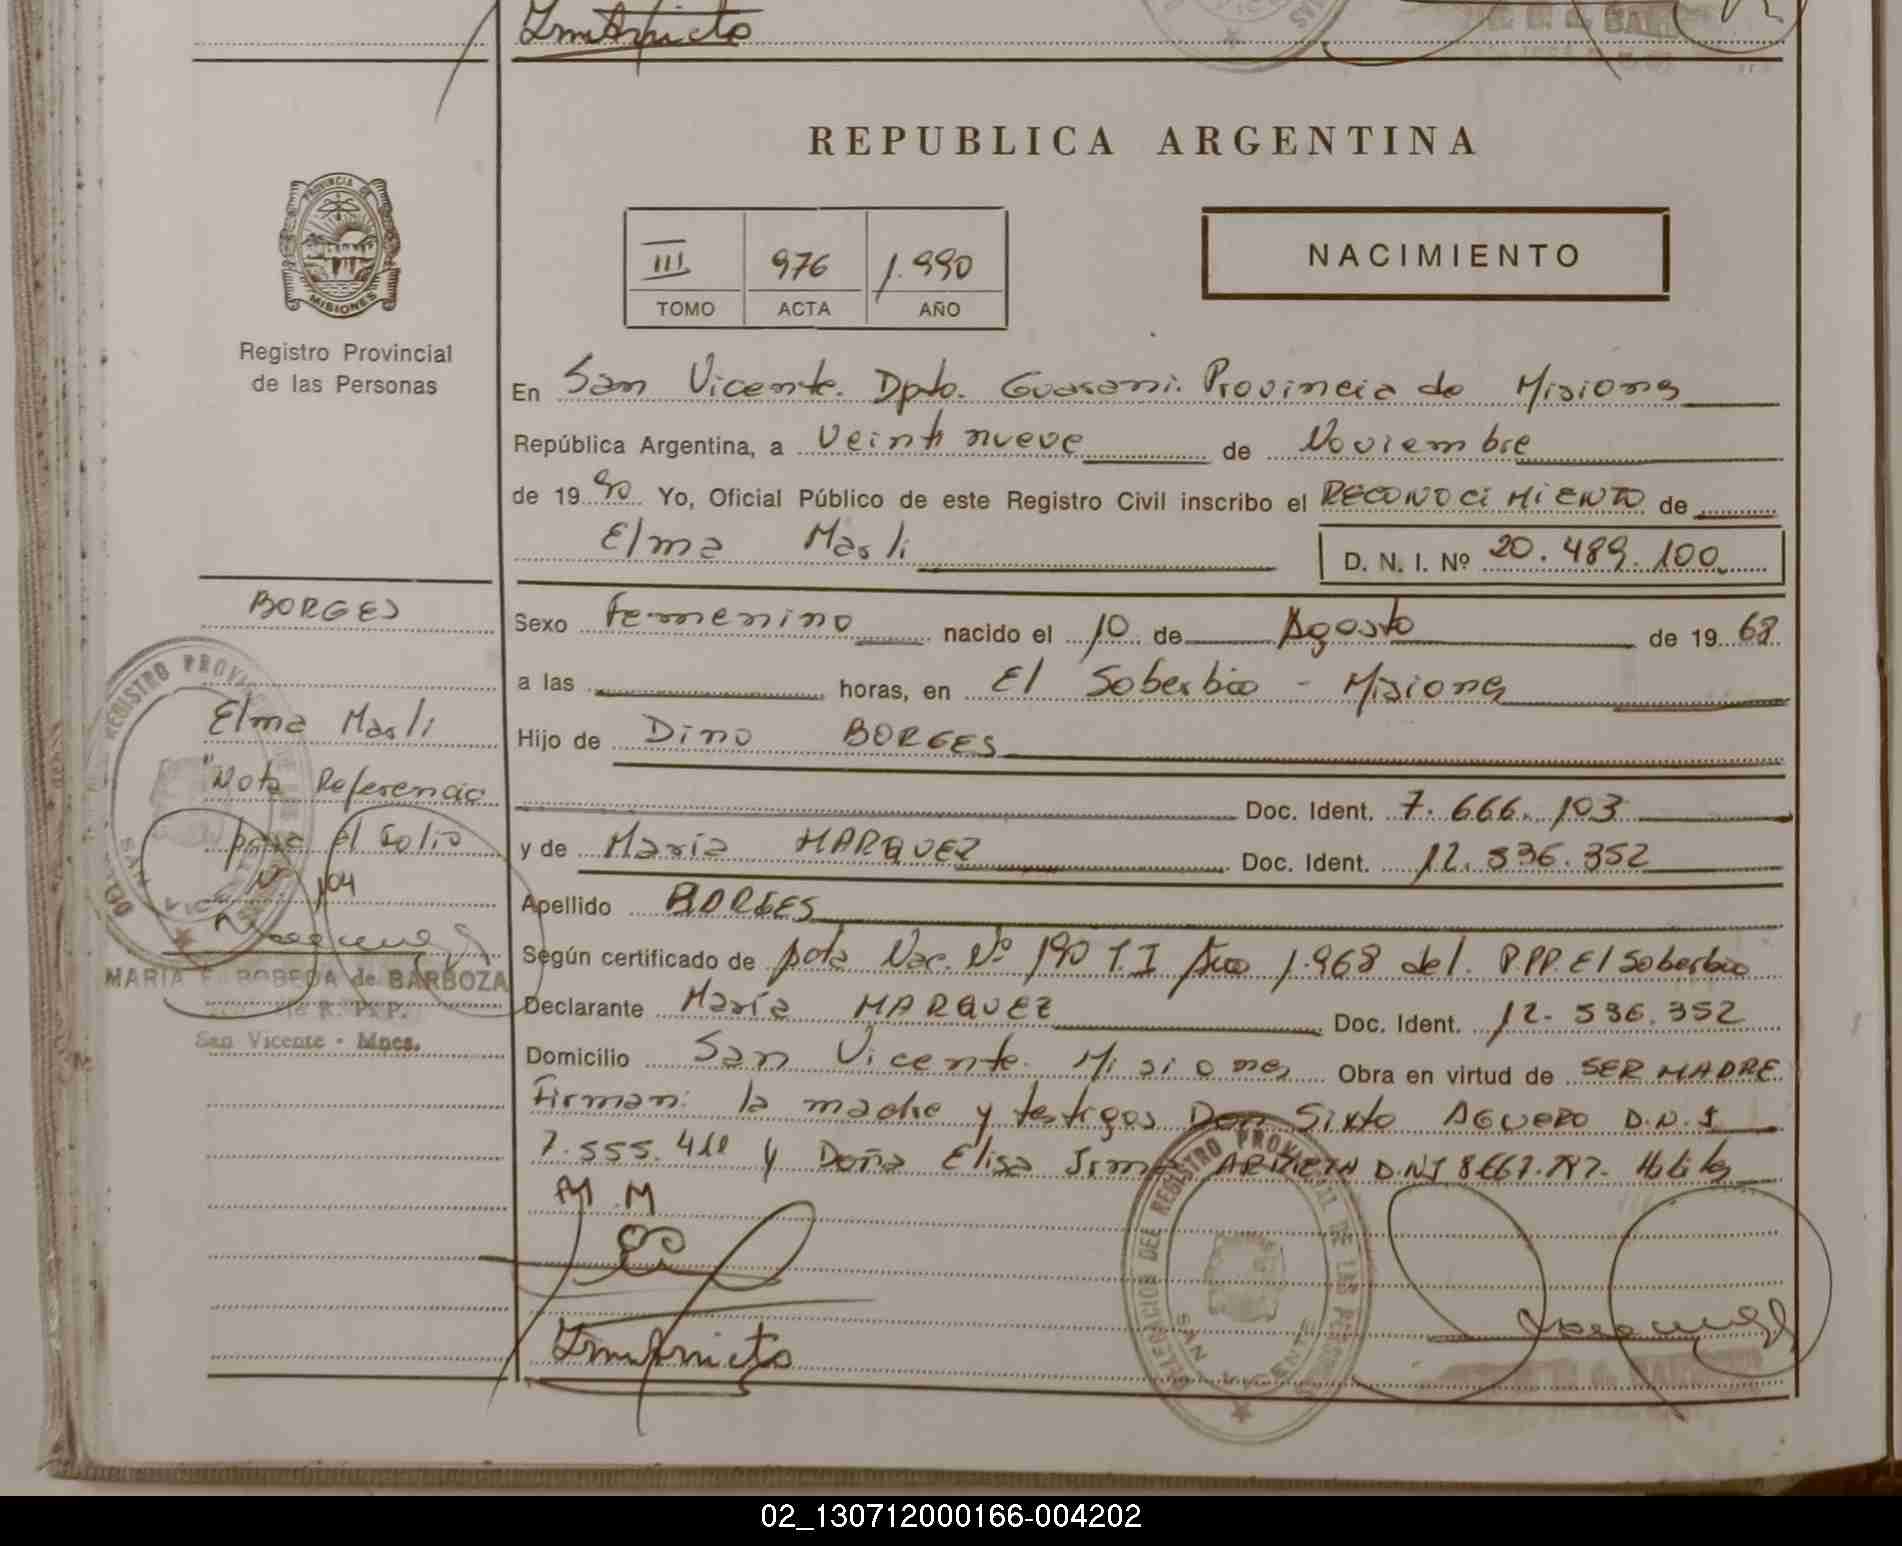 REPUBLICA ARGENTINA
PROVINCIA DE
MISIONES
Registro Provincial
de las Personas
III 976 1.990
TOMO ACTA AÑO
NACIMIENTO
En San Vicente. Dpto. Guarani. Provincia de Misiones
República Argentina, a Veinti nueve de Noviembre
de 19 90 Yo, Oficial Público de este Registro Civil inscribo el RECONOCIMIENTO de
Elma Marli
D. N. I. Nº 20.489.100
BORGES
Elma Marli
"Nota Referencia
para el folio
104
MARIA E. BOBEDA de BARBOZA
R. P. P.
San Vicente - Mnes.
Sexo Femenino nacido el 10 de Agosto de 19 68
a las horas, en El Soberbio - Misiones
Hijo de Dino BORGES
Doc. Ident. 7.666.103
y de María MARQUEZ Doc. Ident. 12.536.352
Apellido BORGES
Según certificado de Nac. Nº 190 T.I Año 1.968 del. R.P.P. El Soberbio
Declarante María MARQUEZ Doc. Ident. 12.536.352
Domicilio San Vicente. Misiones Obra en virtud de SER MADRE
Firman: la madre y testigos Don Sixto AGUERO D.N.I
7.555.411 y Doña Elisa Irma D.N.I
M.M
DELEGACION DEL REGISTRO PROVINCIAL DE LAS PERSONAS
SAN VICENTE
02_130712000166-004202